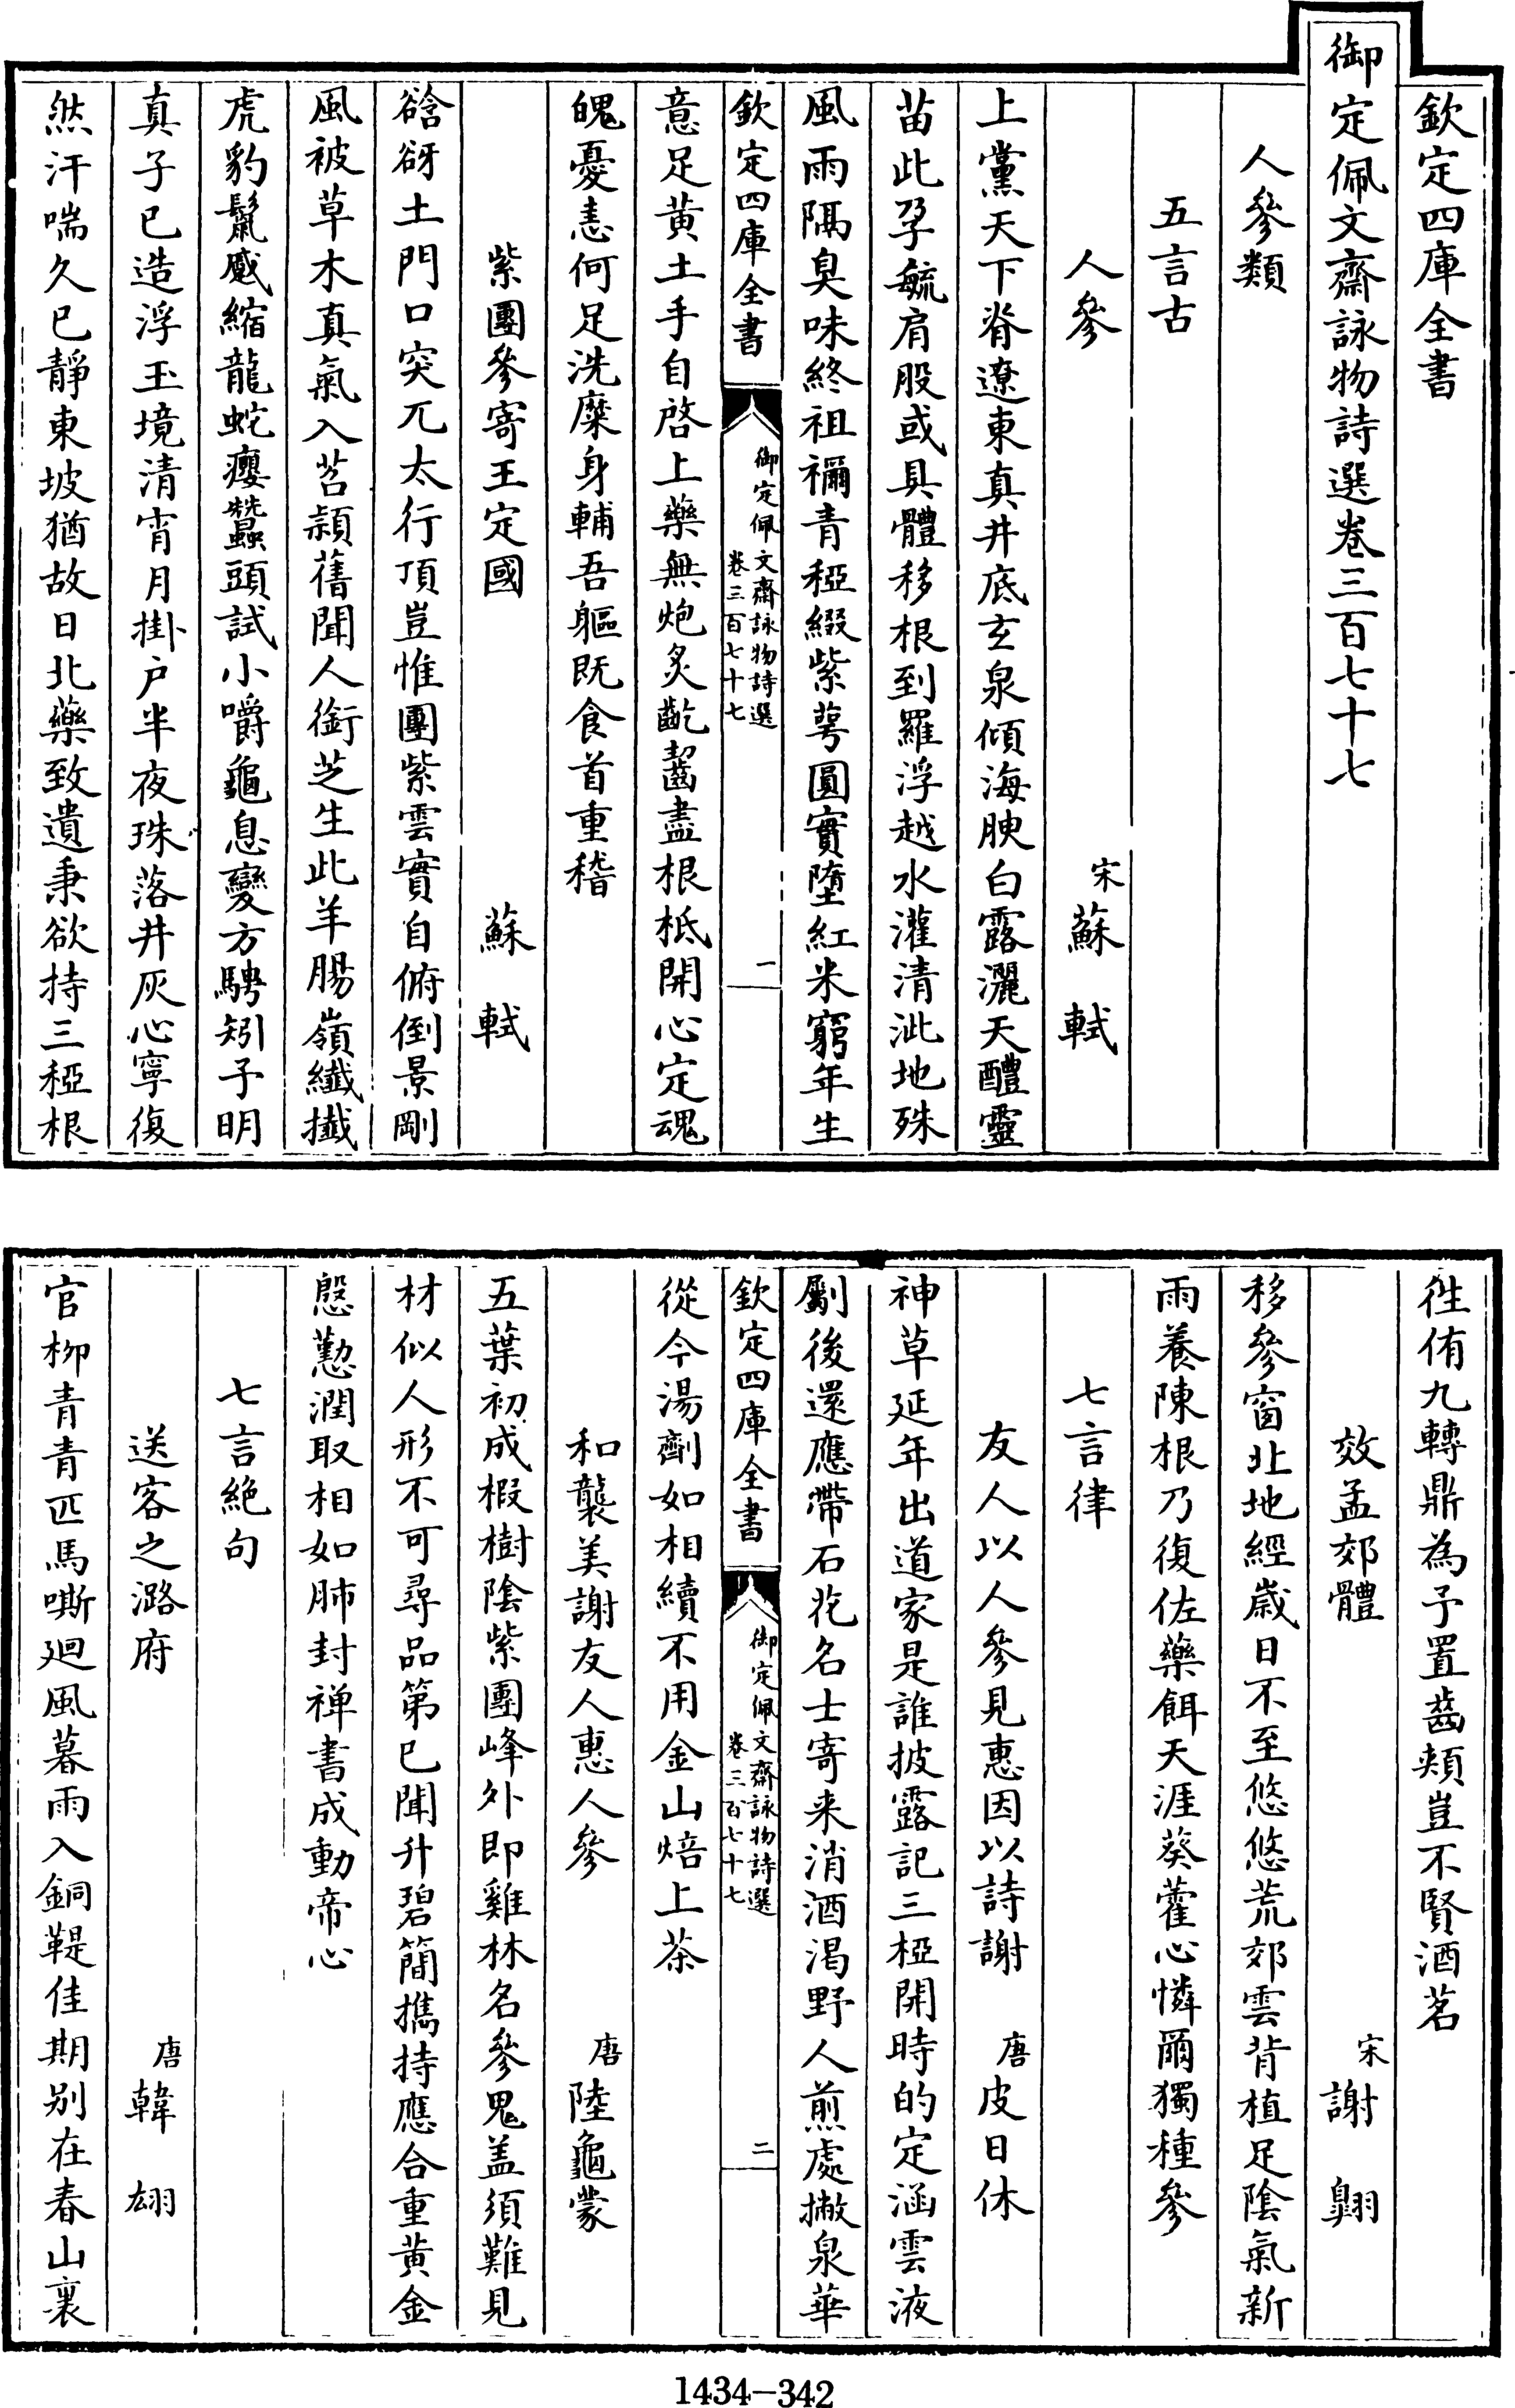 欽定四庫全書
御定佩文齋詠物詩選卷三百七十七
人參類
五言古
人參 宋蘇軾
上黨天下脊遼東真井底玄泉傾海腴白露灑天醴靈
苗此孕毓肩股或具體移根到羅浮越水灌清泚地殊
風雨隔臭味終祖禰青椏綴紫萼圓實墮紅米窮年生
欽定四庫全書 御定佩文齋詠物詩選 卷三百七十七 一
意足黄土手自啓上藥無炮炙齕齧盡根柢開心定魂
魄憂恚何足洗糜身輔吾軀既食首重稽
紫團參寄王定國 蘇軾
谽谺土門口突兀太行頂豈惟團紫雲實自俯倒景剛
風被草木真氣入苕頴舊聞人銜芝生此羊腸嶺纖攕
虎豹鬛蹙縮龍蛇癭蠶頭試小嚼龜息變方騁矧子明
真子已造浮玉境清宵月掛户半夜珠落井灰心寧復
然汗喘久已靜東坡猶故日北藥致遺秉欲持三椏根
徃侑九轉鼎為予置齒頰豈不賢酒茗
效孟郊體 宋謝翺
移參窗北地經歳日不至悠悠荒郊雲背植足陰氣新
雨養陳根乃復佐藥餌天涯葵藿心憐爾獨種參
七言律
友人以人參見惠因以詩謝 唐皮日休
神草延年出道家是誰披露記三椏開時的定涵雲液
劚後還應帶石花名士寄来消酒渴野人煎處撇泉華
欽定四庫全書 御定佩文齋詠物詩選 卷三百七十七 二
從今湯劑如相續不用金山焙上茶
和襲美謝友人惠人參 唐陸龜蒙
五葉初成椵樹陰紫團峰外即雞林名參鬼盖須難見
材似人形不可尋品第已聞升碧簡擕持應合重黄金
慇懃潤取相如肺封禪書成動帝心
七言絶句
送客之潞府 唐韓翃
官柳青青匹馬嘶廻風暮雨入銅鞮佳期别在春山裏
1434-342